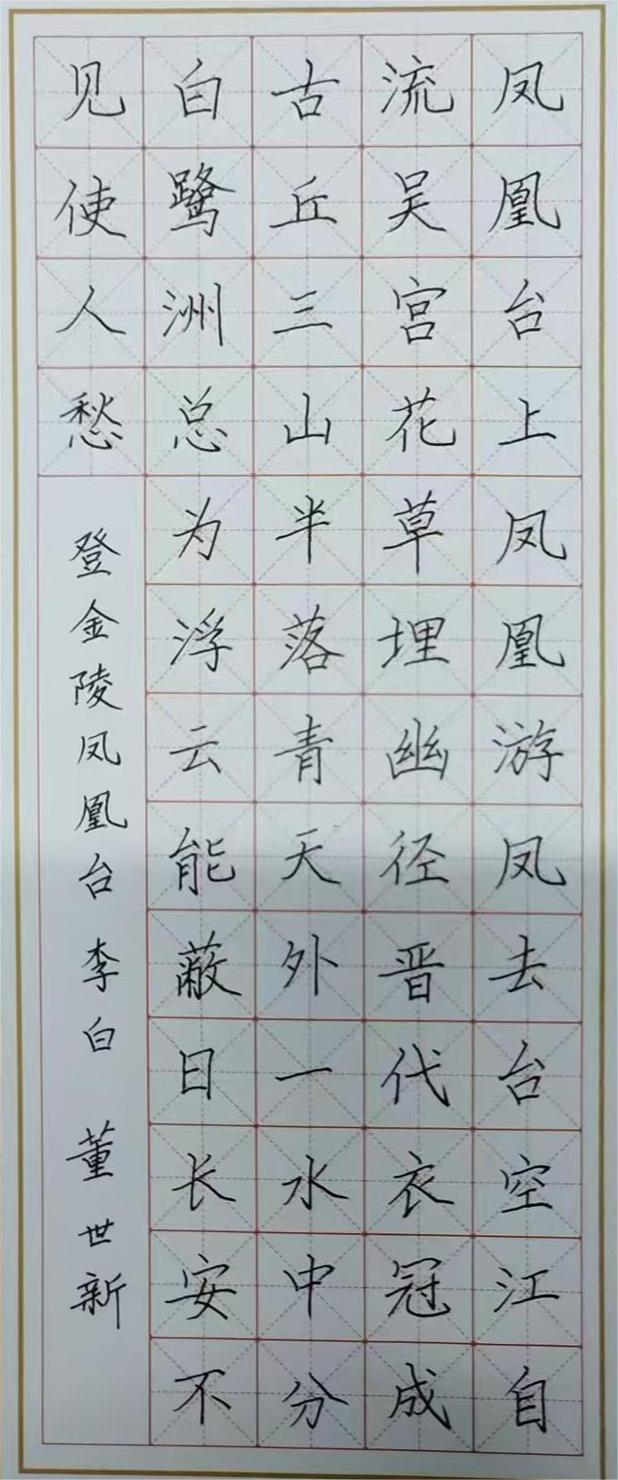 凤凰台上凤凰游凤去台空江自
流吴宫花草埋幽径晋代衣冠成
古丘三山半落青天外一水中分
白鹭洲总为浮云能蔽日长安不
见使人愁
登金陵凤凰台 李白 董世新